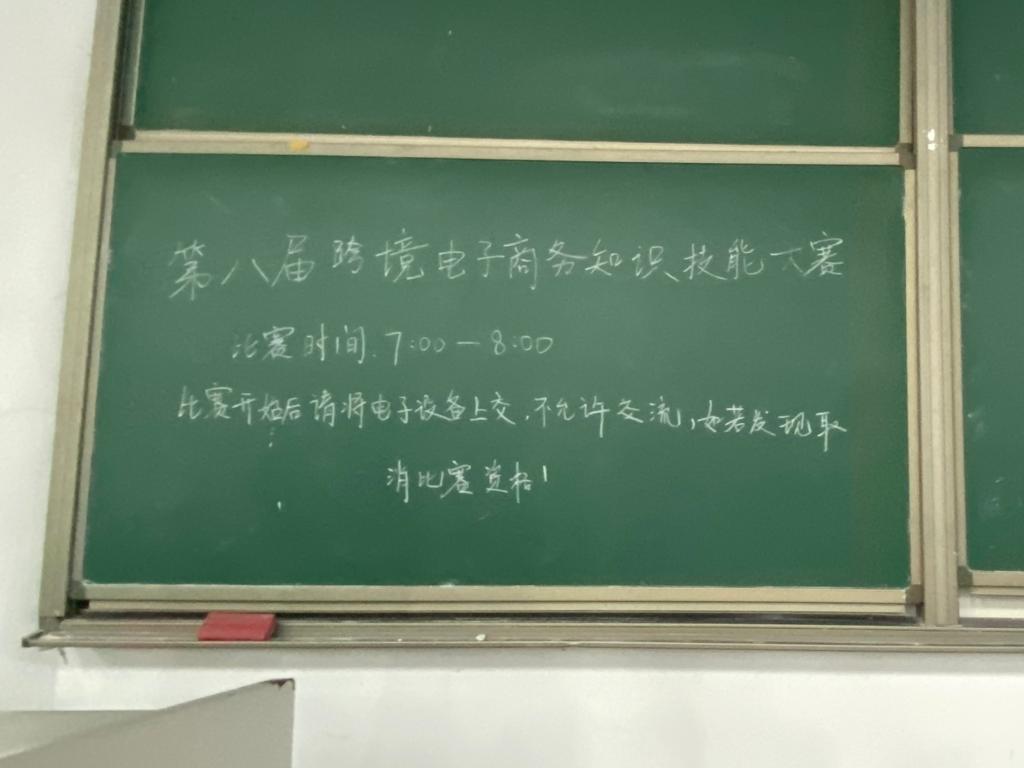 第八届跨境电子商务知识技能大赛
比赛时间.7:00—8:00
比赛开始后请将电子设备上交,不允许交流,如若发现取
消比赛资格!